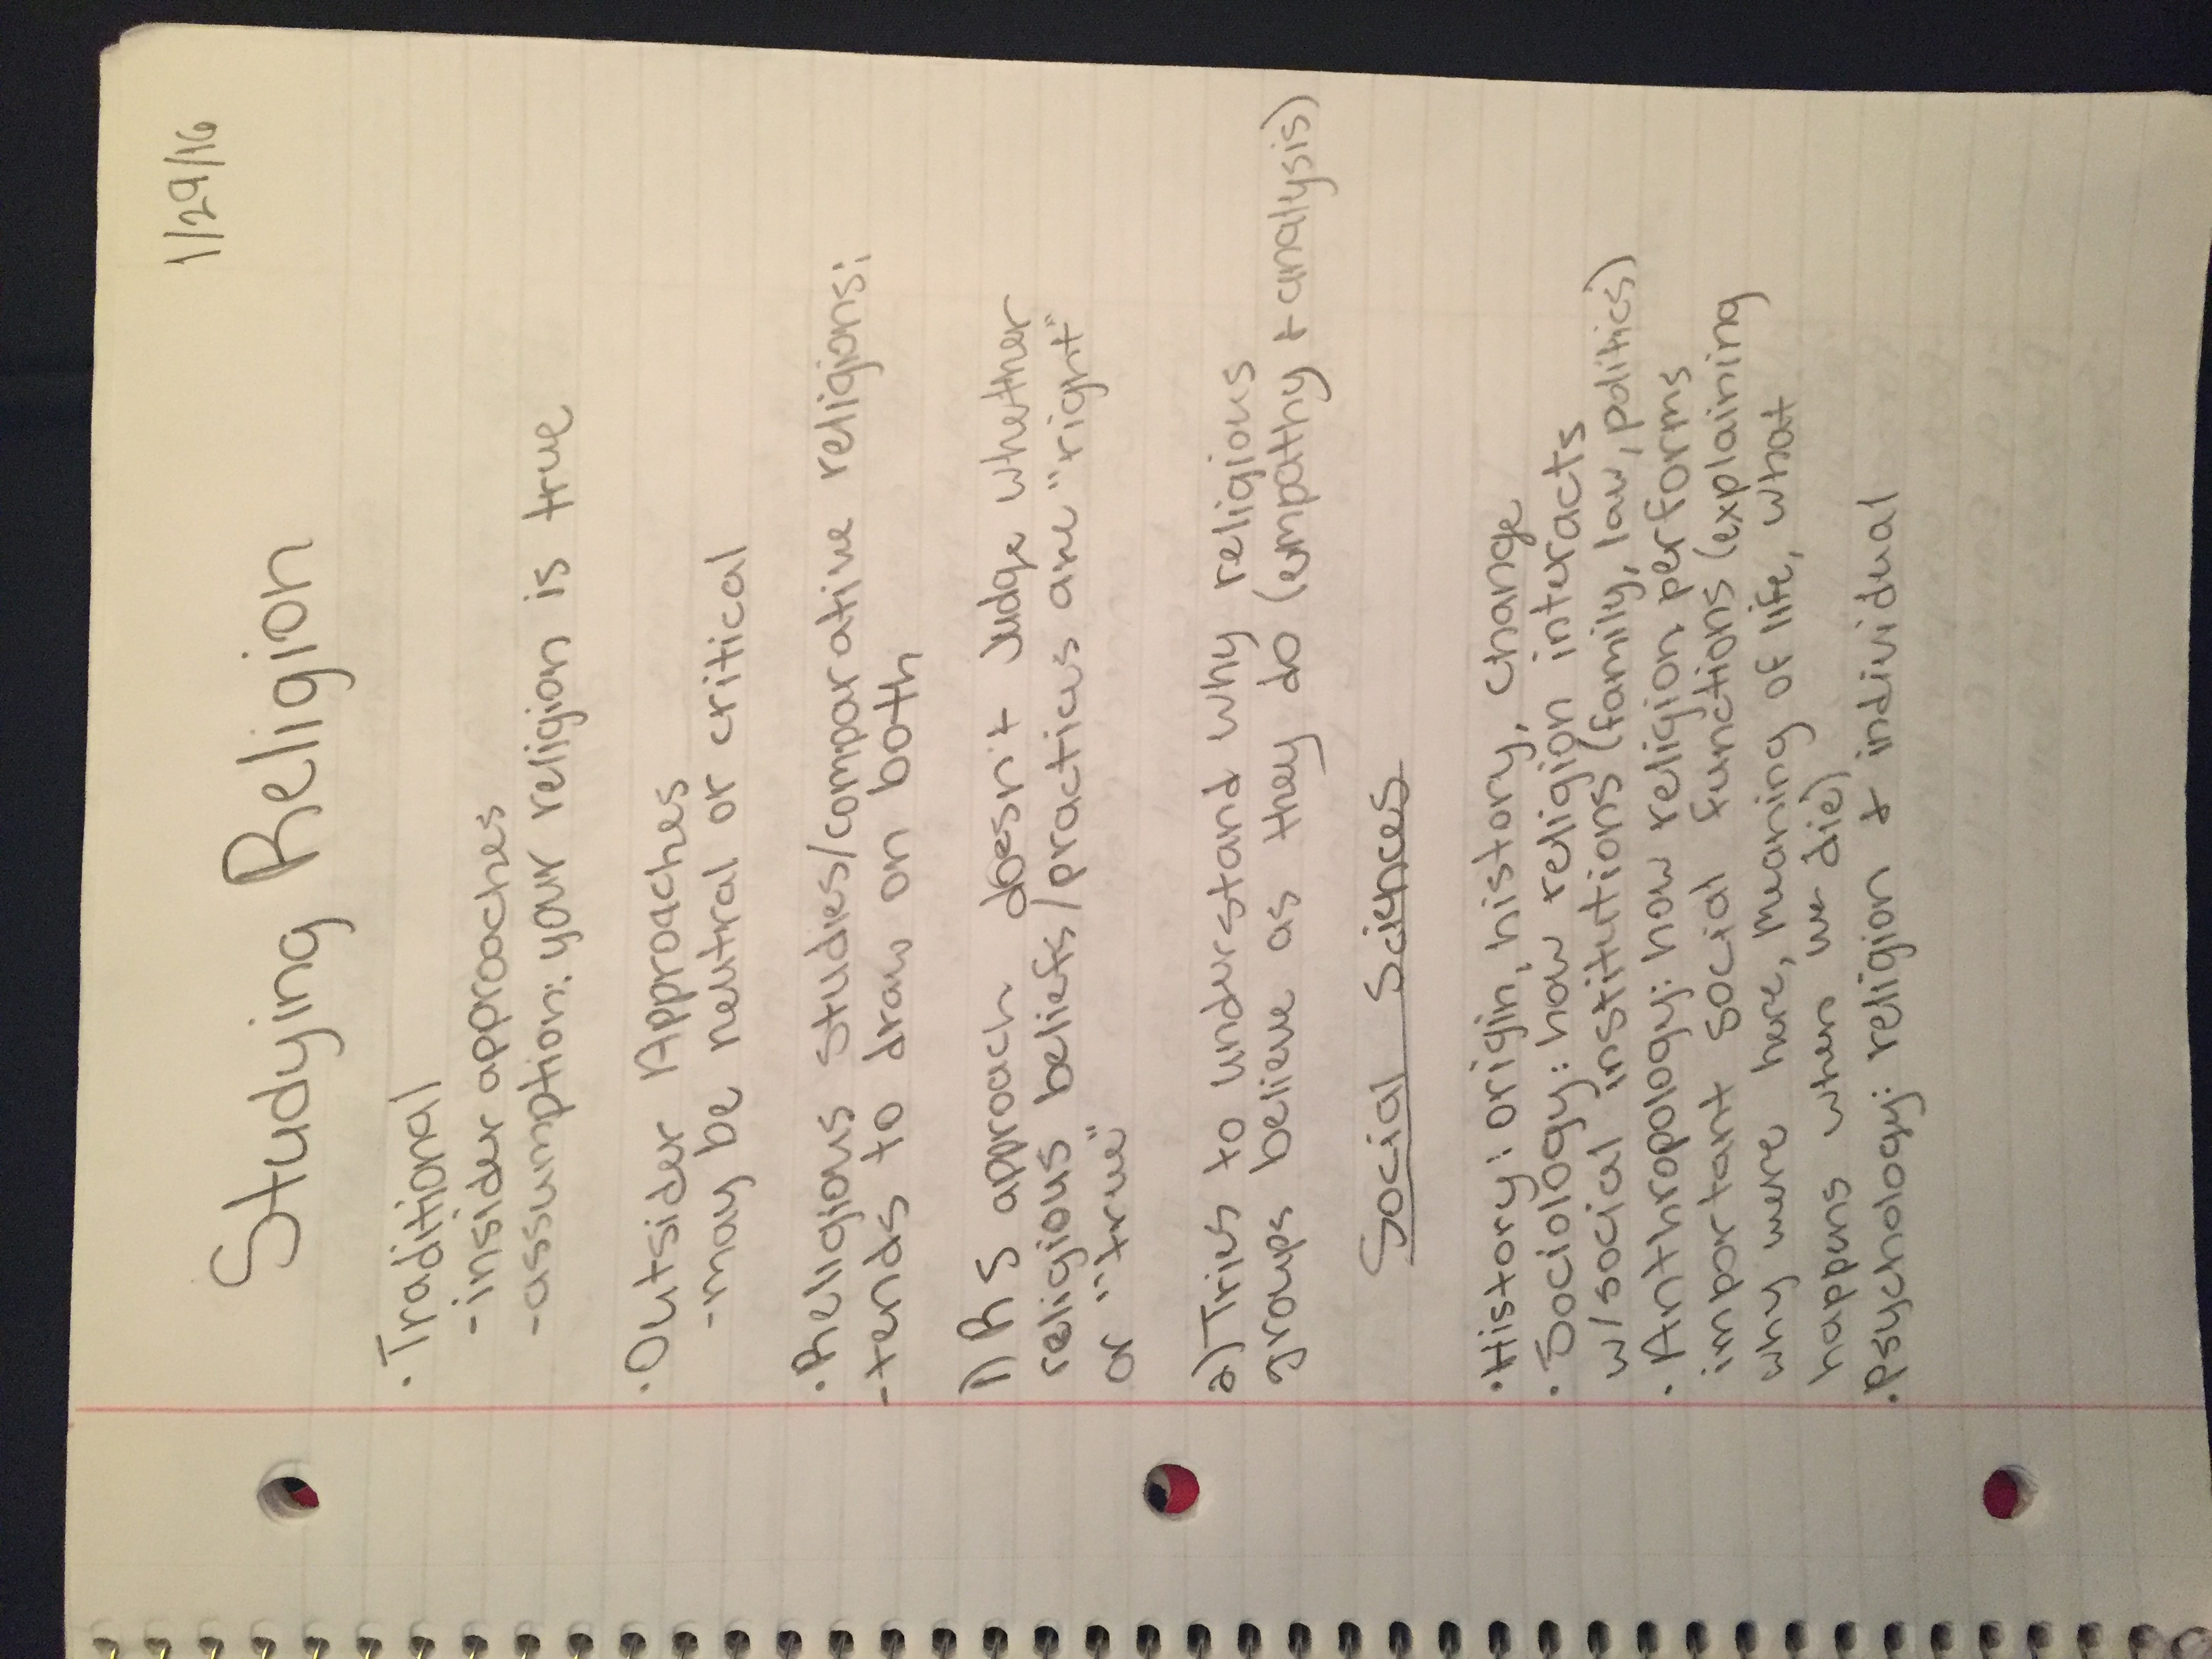 1/29/16
Studying Religion
• Traditional
-insider approaches
-assumption: your religion is true
• Outsider Approaches
-may be neutral or critical
• Religious studies/comparative religions:
-tends to draw on both
1) RS approach doesn't judge whether
religious beliefs/practices are "right"
or "true"
2) Tries to understand why religious
groups believe as they do (empathy + analysis)
Social Sciences
• History: origin, history, change
• Sociology: how religion interacts
w/social institutions (family, law, politics)
• Anthropology: how religion performs
important social functions (explaining
why were here, meaning of life, what
happens when we die)
• Psychology: religion + individual